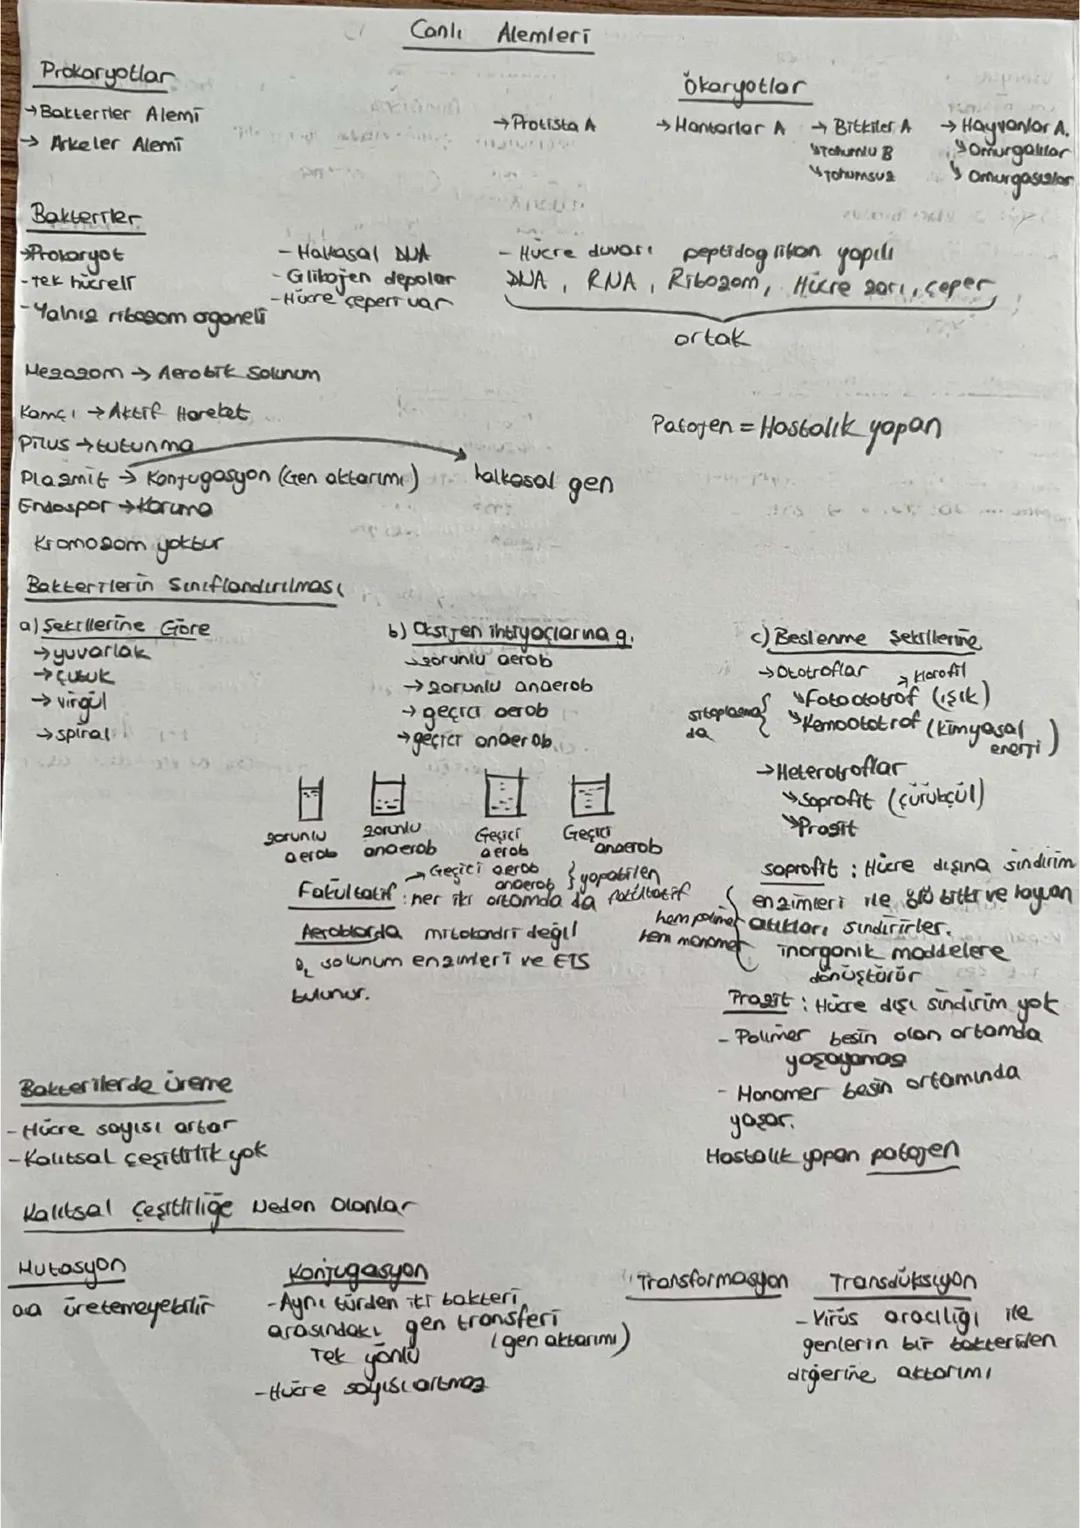 Canlı Alemleri
Prokaryotlar
→ Bakteriler Alemi
→ Arkeler Alemi
Ökaryotlar
→ Protista A
→ Mantarlar A
→ Bitkiler A
↳ Tohumlu B
↳ Tohumsuz
→ Hayvanlar A.
↳ Omurgalılar
↳ Omurgasızlar
Bakteriler
→ Prokaryot
- Tek hücreli
- Yalnız ribozom organeli
- Halkasal DNA
- Glikojen depolar
- Hücre çeperi var
- Hücre duvarı peptidoglikan yapılı
DNA, RNA, Ribozom, Hücre zarı, çeper
ortak
Mezozom → Aerobik Solunum
Kamçı → Aktif Hareket
Pilus → tutunma
Plazmit → Konjugasyon (Gen aktarımı)
halkasal gen
Endospor → Koruma
Kromozom yoktur
Patojen = Hastalık yapan
Bakterilerin Sınıflandırılması
a) Şekillerine Göre
→ yuvarlak
→ çubuk
→ virgül
→ spiral
b) Oksijen ihtiyaçlarına g.
→ zorunlu aerob
→ zorunlu anaerob
→ geçici aerob
→ geçici anaerob
zorunlu aerob
zorunlu anaerob
Geçici aerob
Geçici anaerob
→ Geçici aerob
anaerob } yapabilen
Fakültatif : her iki ortamda da fakültatif
Aeroblarda mitokondri değil
O₂ solunum enzimleri ve ETS
bulunur.
c) Beslenme Şekillerine
→ Ototroflar
→ klorofil
↳ Fotoototrof (ışık)
↳ Kemoototrof (kimyasal enerji)
sitoplazma da
→ Heterotroflar
↳ Saprofit (çürükçül)
↳ Prazit
saprofit : Hücre dışına sindirim
enzimleri ile ölü bitki ve hayvan
atıkları sindirirler.
hem polimer
hem monomer
inorganik maddelere
dönüştürür
Prazit : Hücre dışı sindirim yok
- Polimer besin olan ortamda
yaşayamaz
- Monomer besin ortamında
yaşar.
Hastalık yapan patojen
Bakterilerde üreme
- Hücre sayısı artar
- Kalıtsal çeşitlilik yok
Kalıtsal Çeşitliliğe Neden Olanlar
Mutasyon
aa üretemeyebilir
Konjugasyon
- Aynı türden iki bakteri
arasındaki gen transferi
(gen aktarımı)
Tek yönlü
- Hücre sayısı artmaz
Transformasyon
Transdüksiyon
- Virüs aracılığı ile
genlerin bir bakteriden
diğerine aktarımı